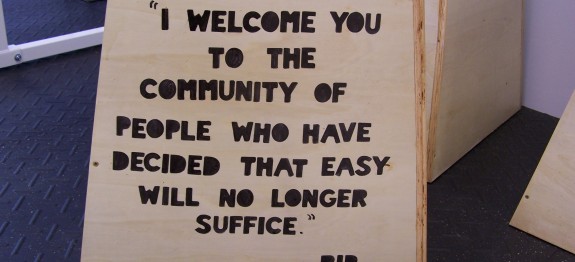 "I WELCOME YOU
TO THE
COMMUNITY OF
PEOPLE WHO HAVE
DECIDED THAT EASY
WILL NO LONGER
SUFFICE."